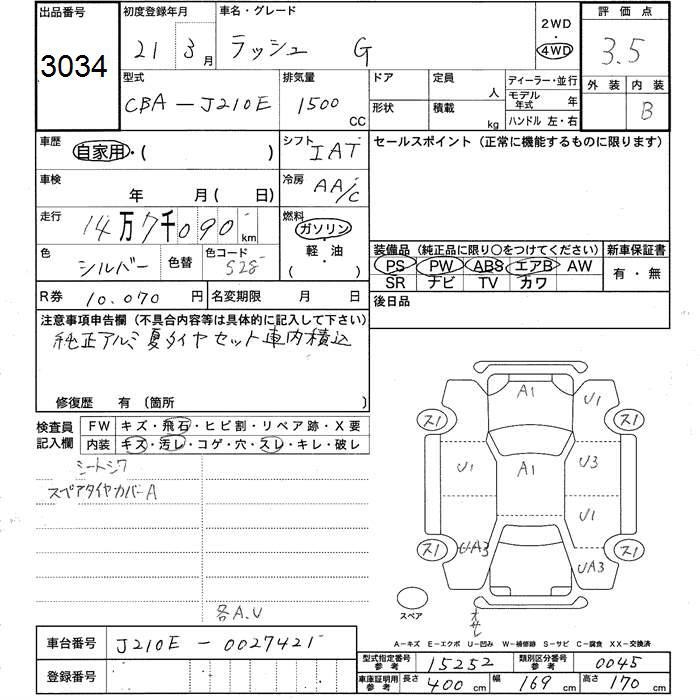 出品番号
3034
初度登録年月
21 3月
車名・グレード
ラッシュ G
2WD
4WD
評価点
3.5
外装 内装
B
型式
CBA-J210E
排気量
1500
CC
ドア
形状
定員
人
積載
kg
ディーラー・並行
モデル年式 年
ハンドル 左・右
車歴
自家用・( )
シフト
IAT
セールスポイント(正常に機能するものに限ります)
車検
年 月(日)
冷房
AA/C
走行
14万7千090km
燃料
ガソリン
・
軽油
( )
色
シルバー
色替
色コード
S28
装備品(純正品に限り○をつけてください)
PS PW ABS エアB AW
SR ナビ TV カワ
新車保証書
有・無
R券
10,070円
名変期限 月 日
後日品
注意事項申告欄(不具合内容等は具体的に記入して下さい)
純正アルミ夏タイヤセット車内積込
修復歴 有 〔箇所 〕
検査員
記入欄
FW キズ・飛石・ヒビ割・リペア跡・X要
内装 キズ・汚レ・コゲ・穴・スレ・キレ・破レ
シートシワ
スペアタイヤカバーA
各A.U
A1
U1
ス1
ス1
U1
A1
U3
U1
ス1
UA3
UA3
ス1
スペア
A-キズ E-エクボ U-凹み W-補修跡 S-サビ C-腐食 XX-交換済
車台番号
J210E-0027421
登録番号
型式指定番号
参考
15252
類別区分番号
参考
0045
車庫証明用
参考
長さ 400cm
幅 169cm
高さ 170cm